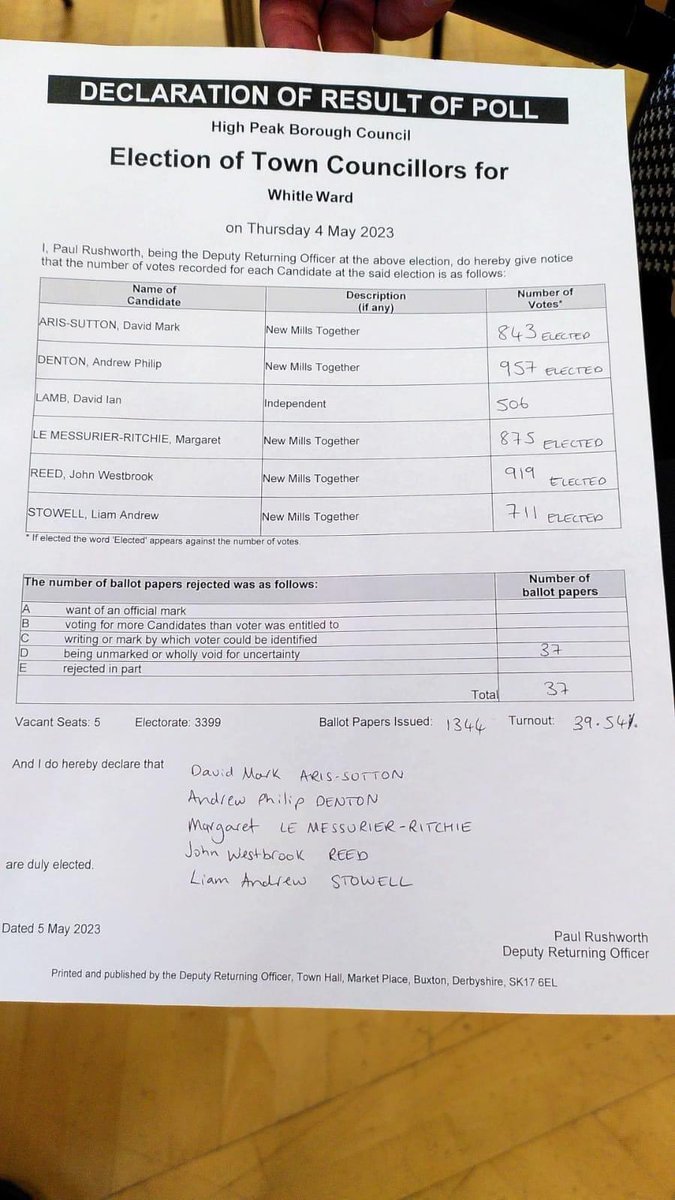 DECLARATION OF RESULT OF POLL
High Peak Borough Council
Election of Town Councillors for
Whitle Ward
on Thursday 4 May 2023
I, Paul Rushworth, being the Deputy Returning Officer at the above election, do hereby give notice
that the number of votes recorded for each Candidate at the said election is as follows:
Name of Candidate Description (if any) Number of Votes*
ARIS-SUTTON, David Mark New Mills Together 843 ELECTED
DENTON, Andrew Philip New Mills Together 957 ELECTED
LAMB, David Ian Independent 506
LE MESSURIER-RITCHIE, Margaret New Mills Together 875 ELECTED
REED, John Westbrook New Mills Together 919 ELECTED
STOWELL, Liam Andrew New Mills Together 711 ELECTED
* If elected the word 'Elected' appears against the number of votes.
The number of ballot papers rejected was as follows: Number of ballot papers
A want of an official mark
B voting for more Candidates than voter was entitled to
C writing or mark by which voter could be identified
D being unmarked or wholly void for uncertainty 37
E rejected in part
Total 37
Vacant Seats: 5 Electorate: 3399 Ballot Papers Issued: 1344 Turnout: 39.54%
And I do hereby declare that David Mark ARIS-SUTTON
Andrew Philip DENTON
Margaret LE MESSURIER-RITCHIE
John Westbrook REED
are duly elected.
Liam Andrew STOWELL
Dated 5 May 2023
Paul Rushworth
Deputy Returning Officer
Printed and published by the Deputy Returning Officer, Town Hall, Market Place, Buxton, Derbyshire, SK17 6EL